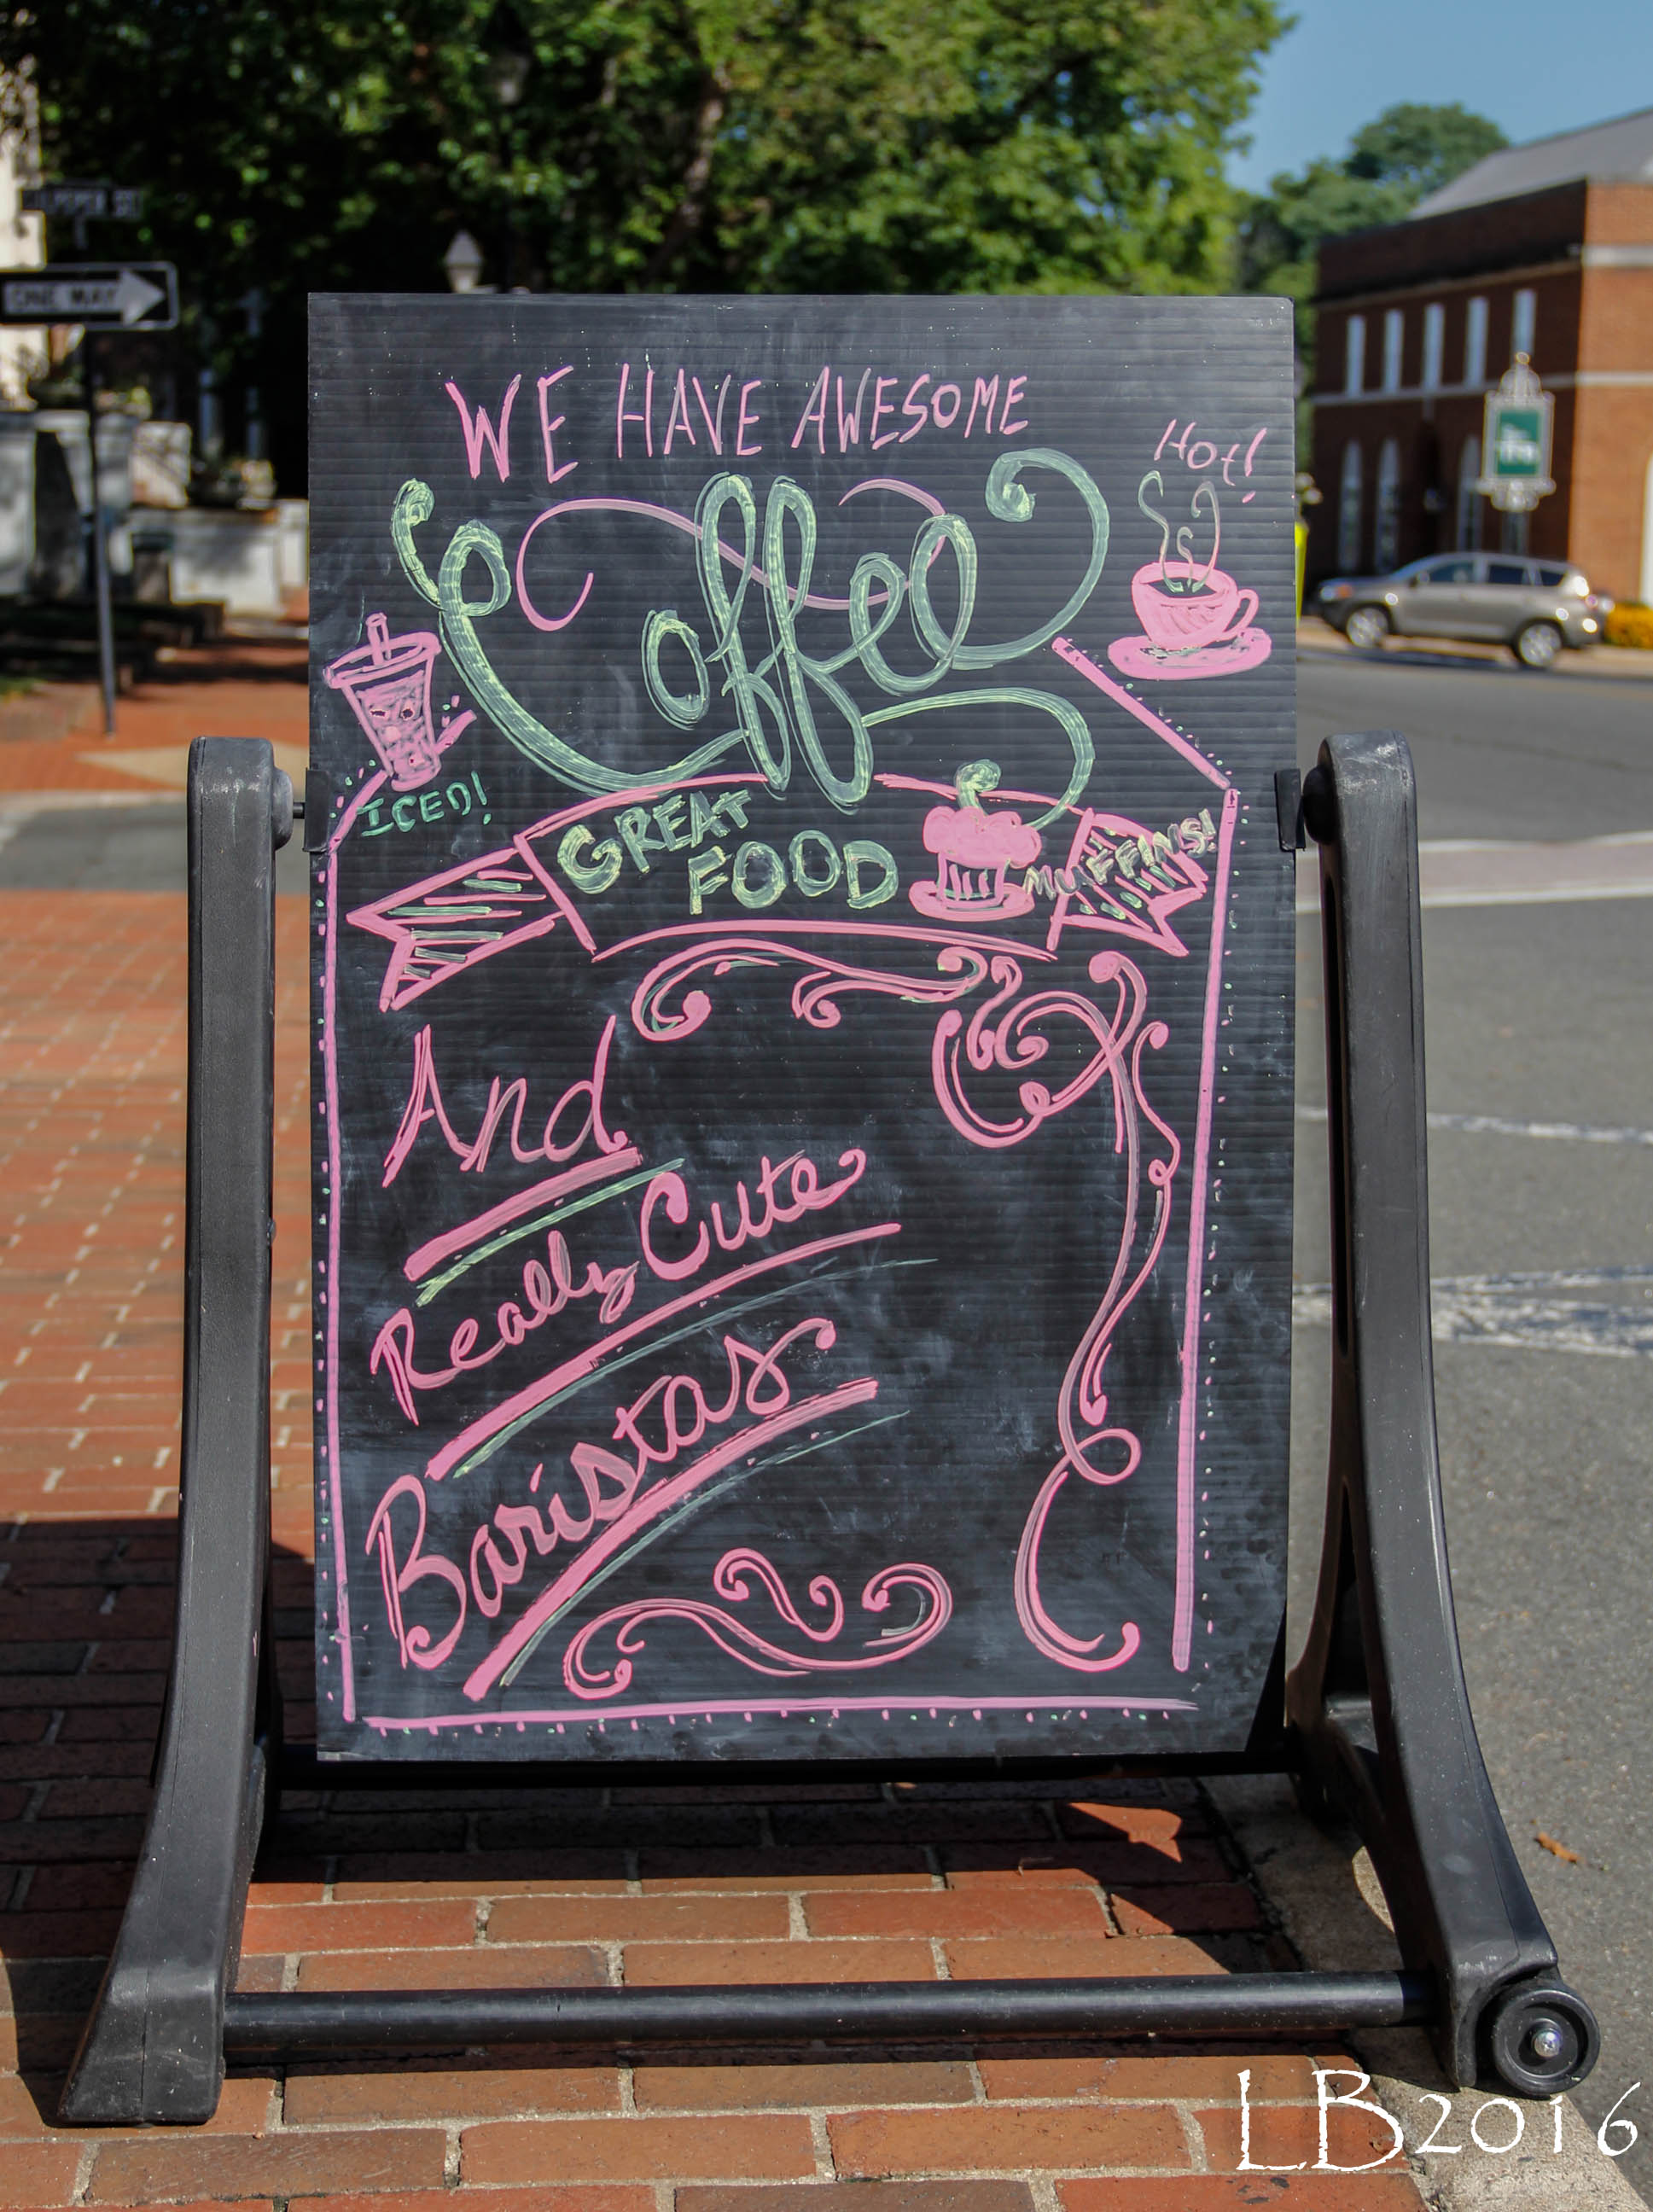 ONE WAY
WE HAVE AWESOME
Hot!
Coffee
ICED!
GREAT
FOOD
MUFFINS!
And
Really Cute
Baristas
LB2016